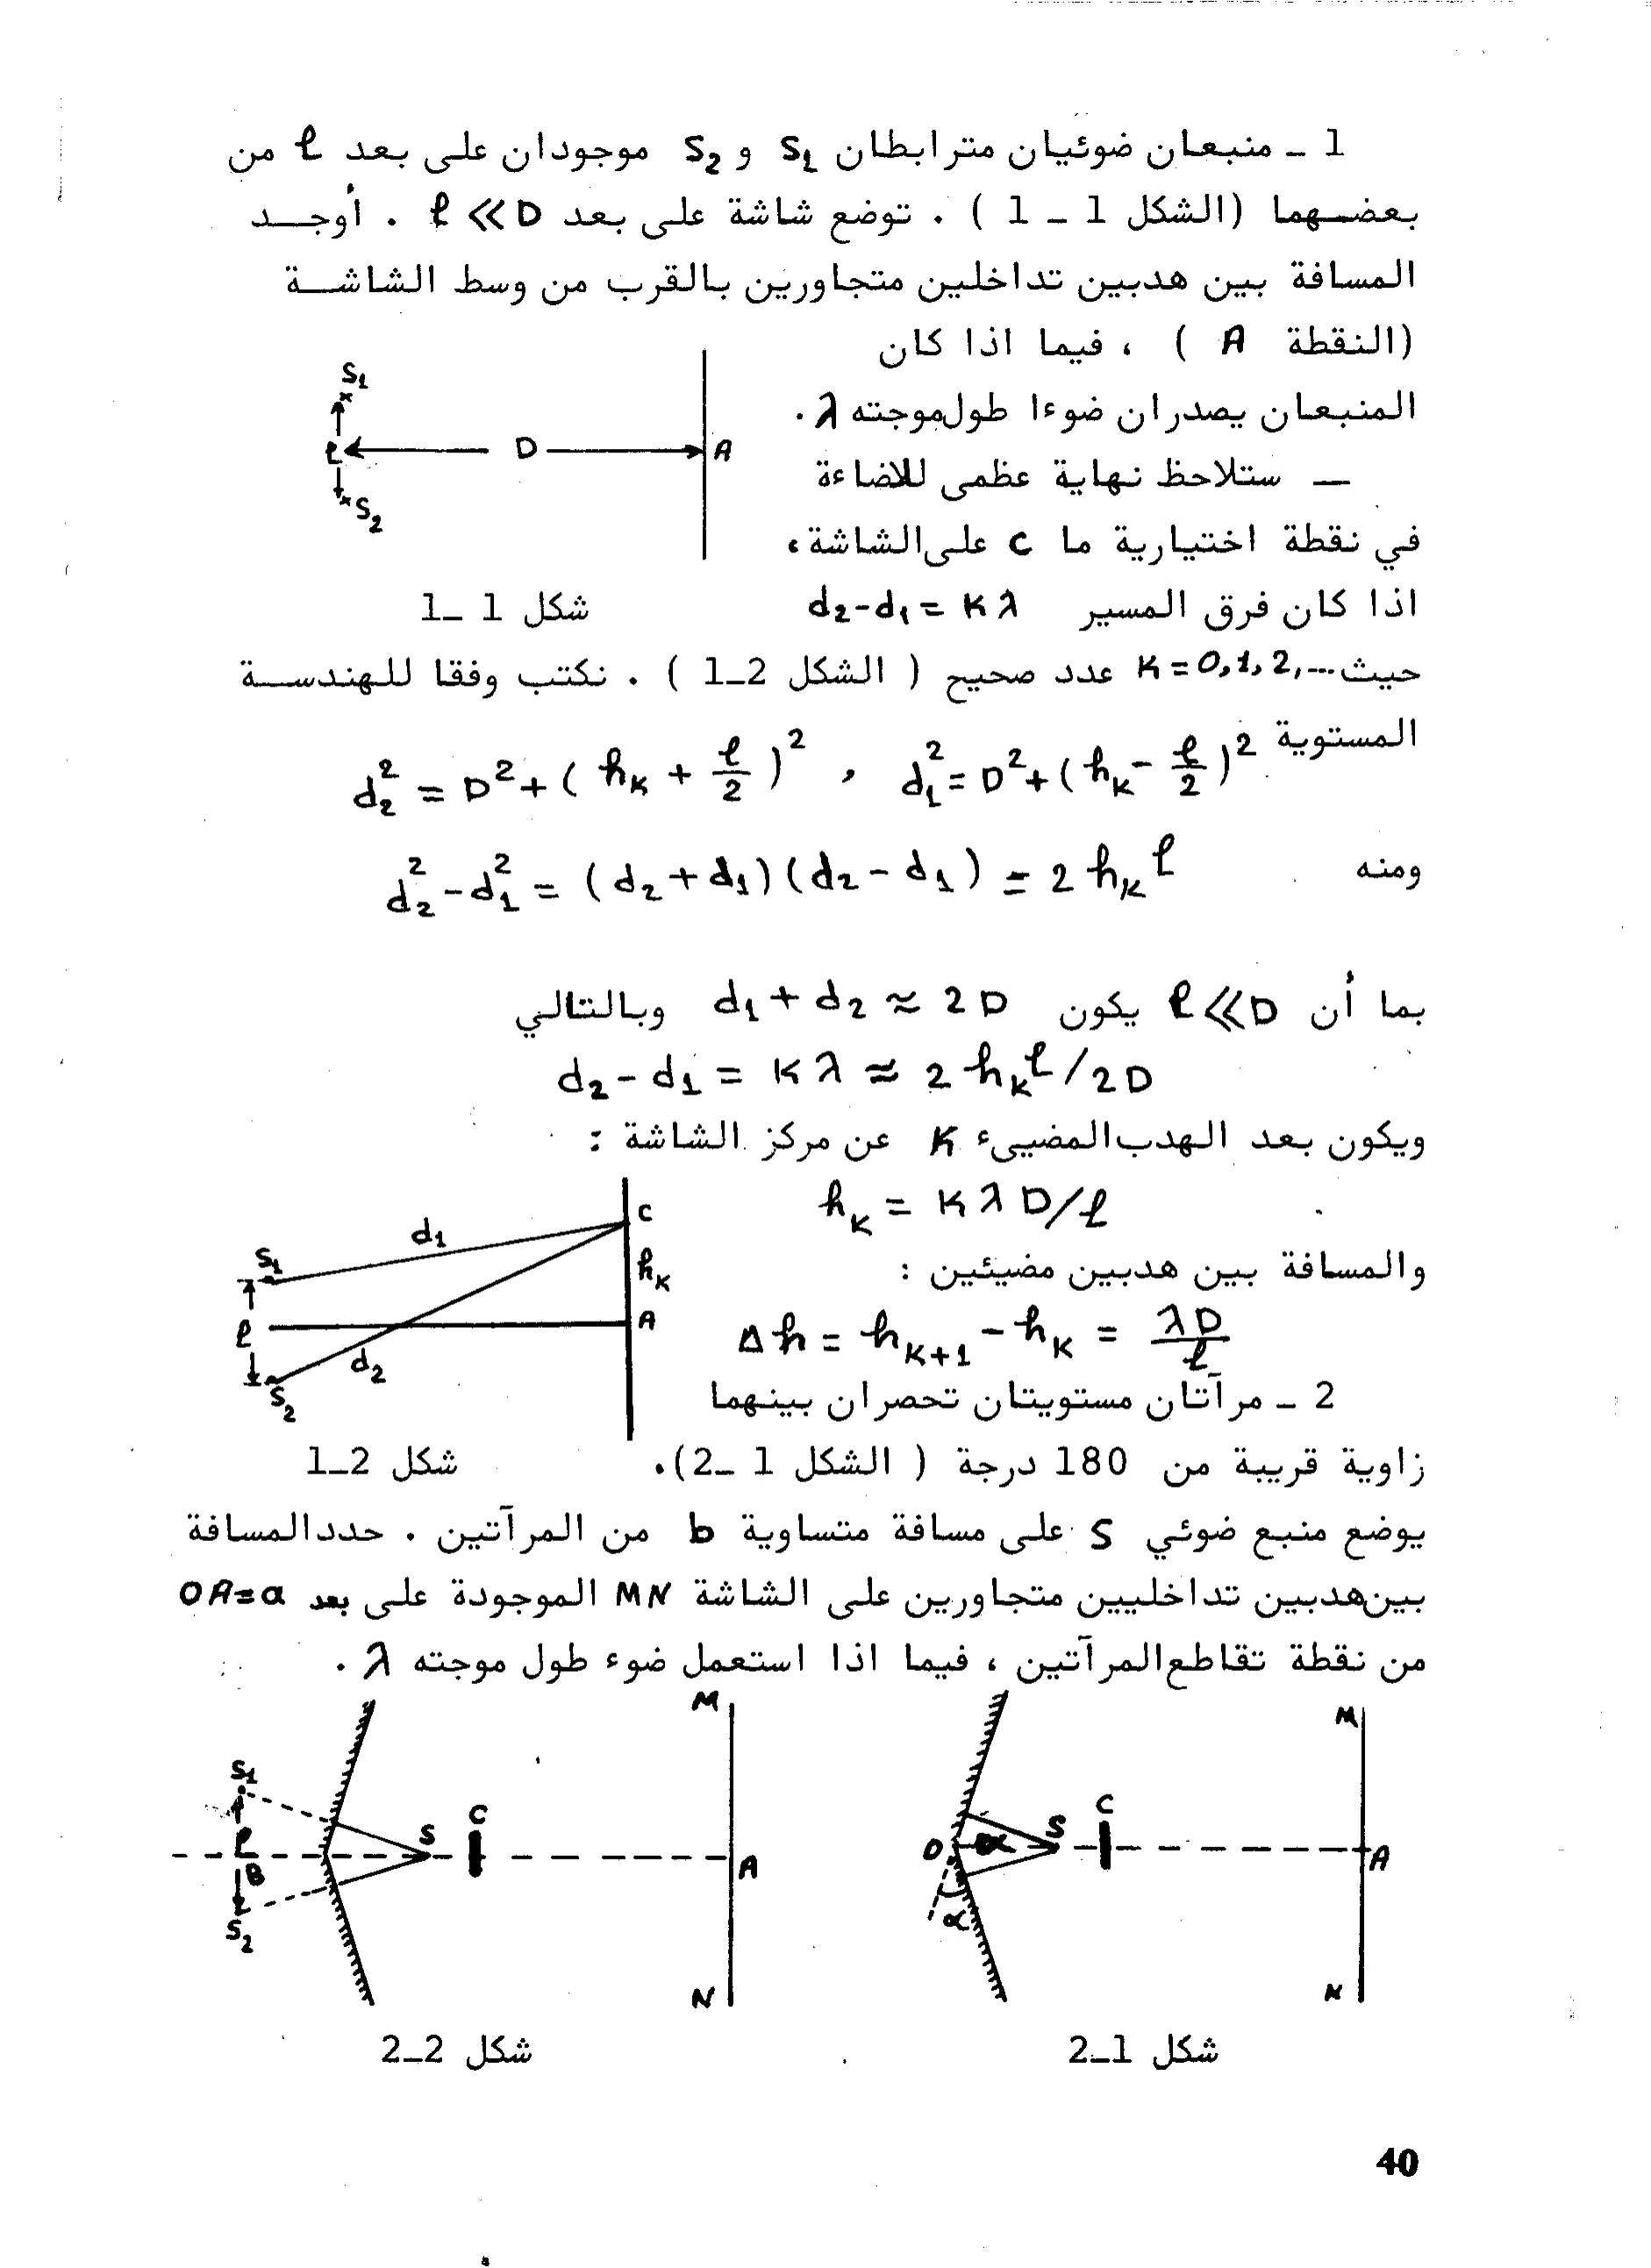 1 ـ منبعان ضوئيان مترابطان S1 و S2 موجودان على بعد ℓ من
بعضهما (الشكل 1 ـ 1 ) . توضع شاشة على بعد ℓ ≪ D . أوجد
المسافة بين هدبين تداخلين متجاورين بالقرب من وسط الشاشة
(النقطة A ) ، فيما اذا كان
المنبعان يصدران ضوءا طول موجته λ .
— ستلاحظ نهاية عظمى للاضاءة
في نقطة اختيارية ما C على الشاشة ،
اذا كان فرق المسير d2-d1 = Kλ
S1
ℓ D A
S2
شكل 1 ـ1
حيث K = 0,1,2,... عدد صحيح ( الشكل 2ـ1 ) . نكتب وفقا للهندسة
المستوية
d2² = D² + ( hK + ℓ/2 )² , d1² = D² + ( hK - ℓ/2 )²
ومنه d2² - d1² = ( d2 + d1 ) ( d2 - d1 ) = 2 hK ℓ
بما أن ℓ ≪ D يكون d1 + d2 ≈ 2 D وبالتالي
d2 - d1 = K λ ≈ 2 hK ℓ / 2 D
ويكون بعد الهدب المضييء K عن مركز الشاشة :
hK = K λ D / ℓ
والمسافة بين هدبين مضيئين :
Δh = hK+1 - hK = λD/ℓ
d1 C
S1 hK
ℓ A
d2
S2
شكل 2ـ1
2 ـ مرآتان مستويتان تحصران بينهما
زاوية قريبة من 180 درجة ( الشكل 1 ـ2).
يوضع منبع ضوئي S على مسافة متساوية b من المرآتين . حدد المسافة
بين هدبين تداخليين متجاورين على الشاشة MN الموجودة على بعد OA=a
من نقطة تقاطع المرآتين ، فيما اذا استعمل ضوء طول موجته λ .
M
C
O α S A
α
N
شكل 1ـ2
M
S1 C
ℓ S
B A
S2
N
شكل 2ـ2
40